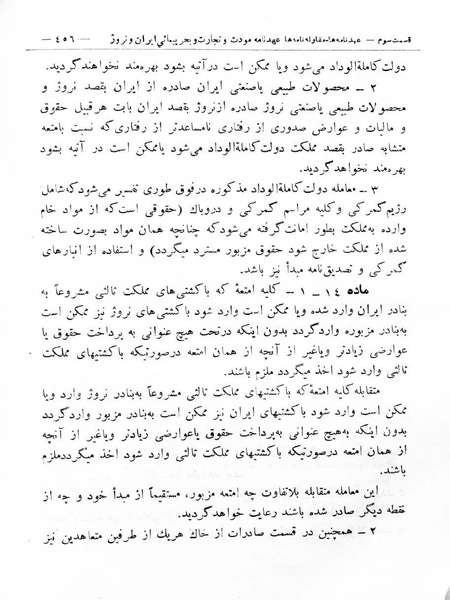 قسمت سوم — عهدنامه‌ها، مقاوله‌نامه‌ها عهدنامه مودت و تجارت و بحرپیمائی ایران و نروژ — ٤٥٦ —
دولت کاملة‌الوداد می‌شود ویا ممکن است درآتیه بشود بهره‌مند نخواهند گردید.
۲ – محصولات طبیعی یاصنعتی ایران صادره از ایران بقصد نروژ و
محصولات طبیعی یاصنعتی نروژ صادره ازنروژ بقصد ایران بابت هرقبیل حقوق
و مالیات و عوارض صدوری از رفتاری نامساعدتر از رفتاری‌که نسبت بامتعه
متشابه صادر بقصد مملکت دولت کاملة‌الوداد می‌شود یاممکن است در آتیه بشود
بهره‌مند نخواهد گردید.
۳ – معامله دولت کاملة‌الوداد مذکوره درفوق طوری تفسیر می‌شود که شامل
رژیم گمرکی و کلیه مراسم گمرکی و درو باک (حقوقی است‌که از مواد خام
وارده به‌مملکت بطور امانت گرفته می‌شود که چنانچه همان مواد بصورت ساخته
شده از مملکت خارج شود حقوق مزبور مسترد میگردد) و استفاده از انبارهای
گمرکی و تصدیق‌نامه مبدأ نیز باشد.
ماده ۱٤ – ۱ – کلیه امتعهٔ که باکشتی‌های مملکت ثالثی مشروعاً به
بنادر ایران وارد شده ویا ممکن است وارد شود باکشتی‌های نروژ نیز ممکن است
به‌بنادر مزبوره واردگردد بدون اینکه درتحت هیچ عنوانی به پرداخت حقوق یا
عوارضی زیادتر ویاغیر از آنچه از همان امتعه درصورتیکه باکشتیهای مملکت
ثالثی وارد شود اخذ میگردد ملزم باشند.
متقابله کلیه امتعهٔ که باکشتیهای مملکت ثالثی مشروعاً به‌بنادر نروژ وارد ویا
ممکن است وارد شود باکشتیهای ایران نیز ممکن است به‌بنادر مزبور واردگردد
بدون اینکه به‌هیچ عنوانی به‌پرداخت حقوق یاعوارضی زیادتر ویاغیر از آنچه
از همان امتعه درصورتیکه باکشتیهای مملکت ثالثی وارد شود اخذ میگردد ملزم
باشند.
این معامله متقابله بلاتفاوت چه امتعه مزبور، مستقیماً از مبدأ خود و چه از
نقطه دیگر صادر شده باشند رعایت خواهدگردید.
۲ – همچنین در قسمت صادرات از خاك هریك از طرفین متعاهدین نیز